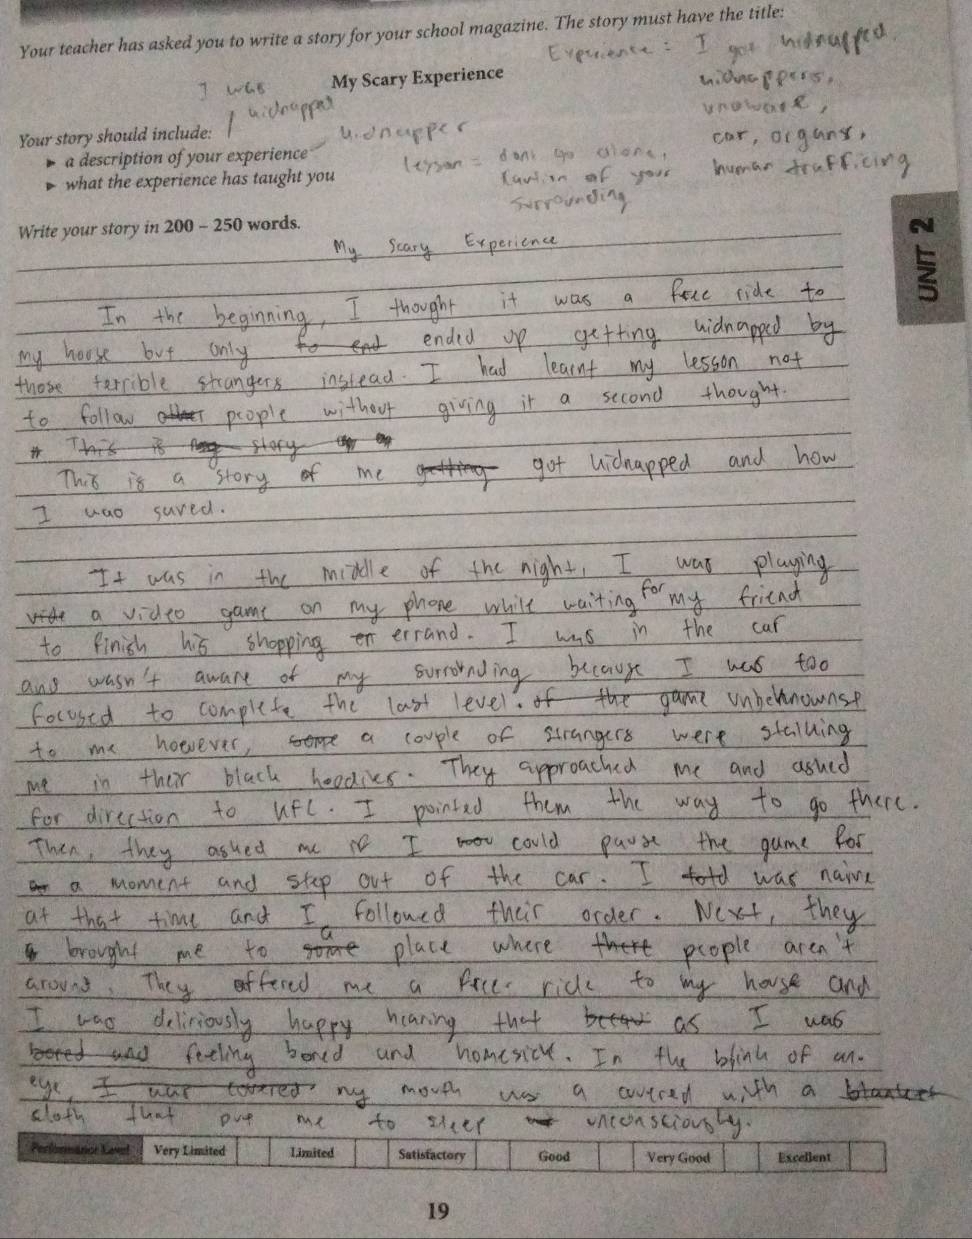 Your teacher has asked you to write a story for your school magazine. The story must have the title:
Experience : I got kidnapped.
My Scary Experience
I was
kidnapped
kidnappers,
unaware,
Your story should include:
kidnapper
car, organs,
▶ a description of your experience
lesson = dont go alone,
human trafficing
▶ what the experience has taught you
of your
surrounding
Write your story in 200 – 250 words.
My Scary Experience
UNIT 2
In the beginning, I thought it was a free ride to
my house but only to end ended up getting kidnapped by
those terrible strangers instead. I had learnt my lesson not
to follow other people without giving it a second thought.
This is my story
This is a story of me getting got kidnapped and how
I was saved.
It was in the middle of the night, I was playing
vide a video game on my phone while waiting for my friend
to finish his shopping err errand. I was in the car
and wasn't aware of my surrounding because I was too
focused to complete the last level. of the game unbeknownst
to me however, some a couple of strangers were stalking
me in their black hoodies. They approached me and asked
for direction to KFC. I pointed them the way to go there.
Then, they asked me if I could pause the game for
a moment and step out of the car. I told was naive
at that time and I followed their order. Next, they
brought me to some a place where there people aren't
around. They offered me a free ride to my house and
I was deliriously happy hearing that becau as I was
bored and feeling bored and homesick. In the blink of an
eye, I was covered my mouth was a covered with a blanket
cloth that put me to sleep unconsciously.
Performance Level Very Limited Limited Satisfactory Good Very Good Excellent
19